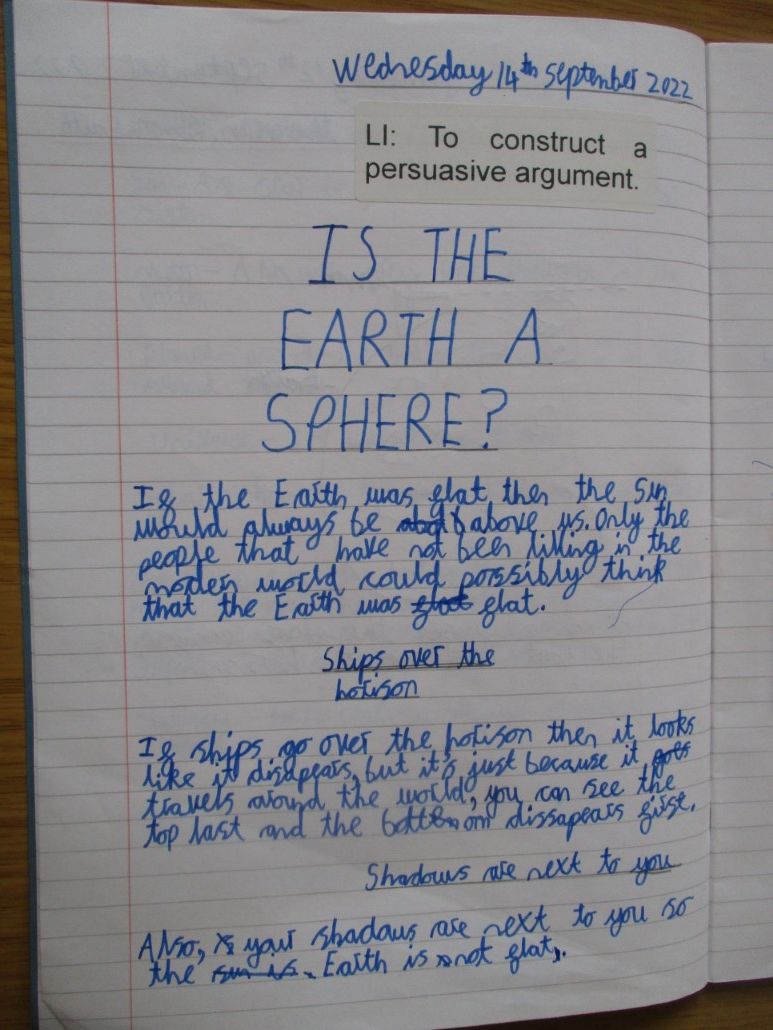 Wednesday 14th September 2022
LI: To construct a
persuasive argument.
IS THE
EARTH A
SPHERE?
If the Earth was flat then the sun
would always be above us. Only the
people that have not been living in the
modern world could possibly think
that the Earth was flat.
Ships over the
horison
If ships go over the horison then it looks
like it disapears, but it's just because it goes
travels around the world, you can see the
top last and the bottom dissapears first.
Shadows are next to you
Also, your shadows are next to you so
the sun is Earth is not flat.